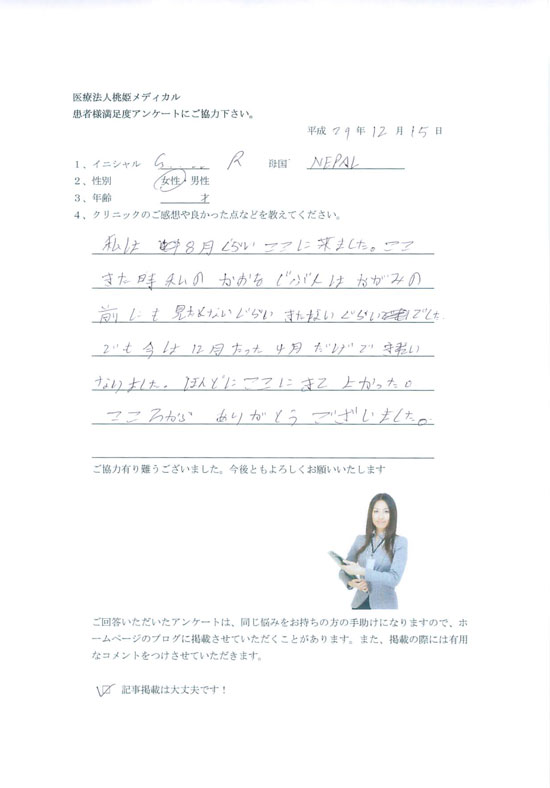 医療法人桃姫メディカル
患者様満足度アンケートにご協力下さい。
平成 29 年 12 月 15 日
1、イニシャル G..... R 母国 NEPAL
2、性別 女性・男性
3、年齢 才
4、クリニックのご感想や良かった点などを教えてください。
私は 8月ぐらい ここに来ました。ここ
きた時 私の かおを じぶんは かがみの
前にも 見れないぐらい きたないぐらい でした
でも 今は 12月 たった 4月 だけで
なりました。ほんどにここにきて よかった。
こころから ありがとう ございました。
ご協力有り難うございました。今後ともよろしくお願いいたします
ご回答いただいたアンケートは、同じ悩みをお持ちの方の手助けになりますので、ホ
ームページのブログに掲載させていただくことがあります。また、掲載の際には有用
なコメントをつけさせていただきます。
記事掲載は大丈夫です！